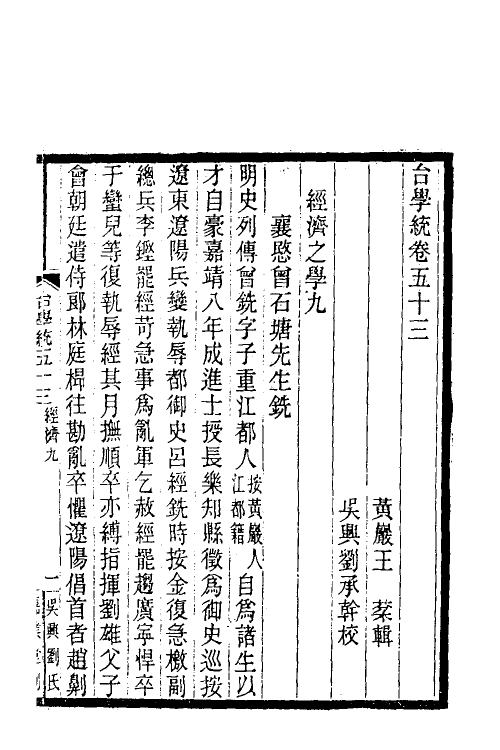 台學統卷五十三
黃巖王 棻輯
吳興劉承幹校
經濟之學九
襄愍曾石塘先生銑
明史列傳曾銑字子重江都人按黃巖人江都籍自爲諸生以
才自豪嘉靖八年成進士授長樂知縣徵爲御史巡按
遼東遼陽兵變執辱都御史呂經銑時按金復急檄副
總兵李鑑罷經苛急事爲亂軍乞赦經罷趨廣寧悍卒
于蠻兒等復執辱經其月撫順卒亦縛指揮劉雄父子
會朝廷遣侍郎林庭㭿往勘亂卒懼遼陽倡首者趙劓
台學統五十三 經濟九
一 吳興劉氏